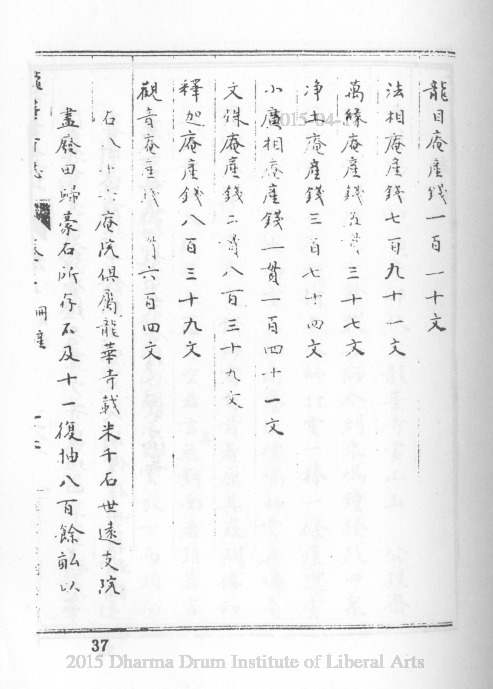 龍目庵產錢一百一十文
法相庵產錢七百九十一文
萬緣庵產錢 三十七文
净土庵產錢三百七十四文
小廣相庵產錢一貫一百四十一文
文殊庵產錢二貫八百三十九文
釋迦庵產錢八百三十九文
觀音庵產錢 六百四文
右八十六庵院俱屬龍華寺載米千石世遠支院
盡廢田歸豪右所存不及十一復抽八百餘畝以
龍華寺志 田產
37
2015-04-
2015 Dharma Drum Institute of Liberal Arts